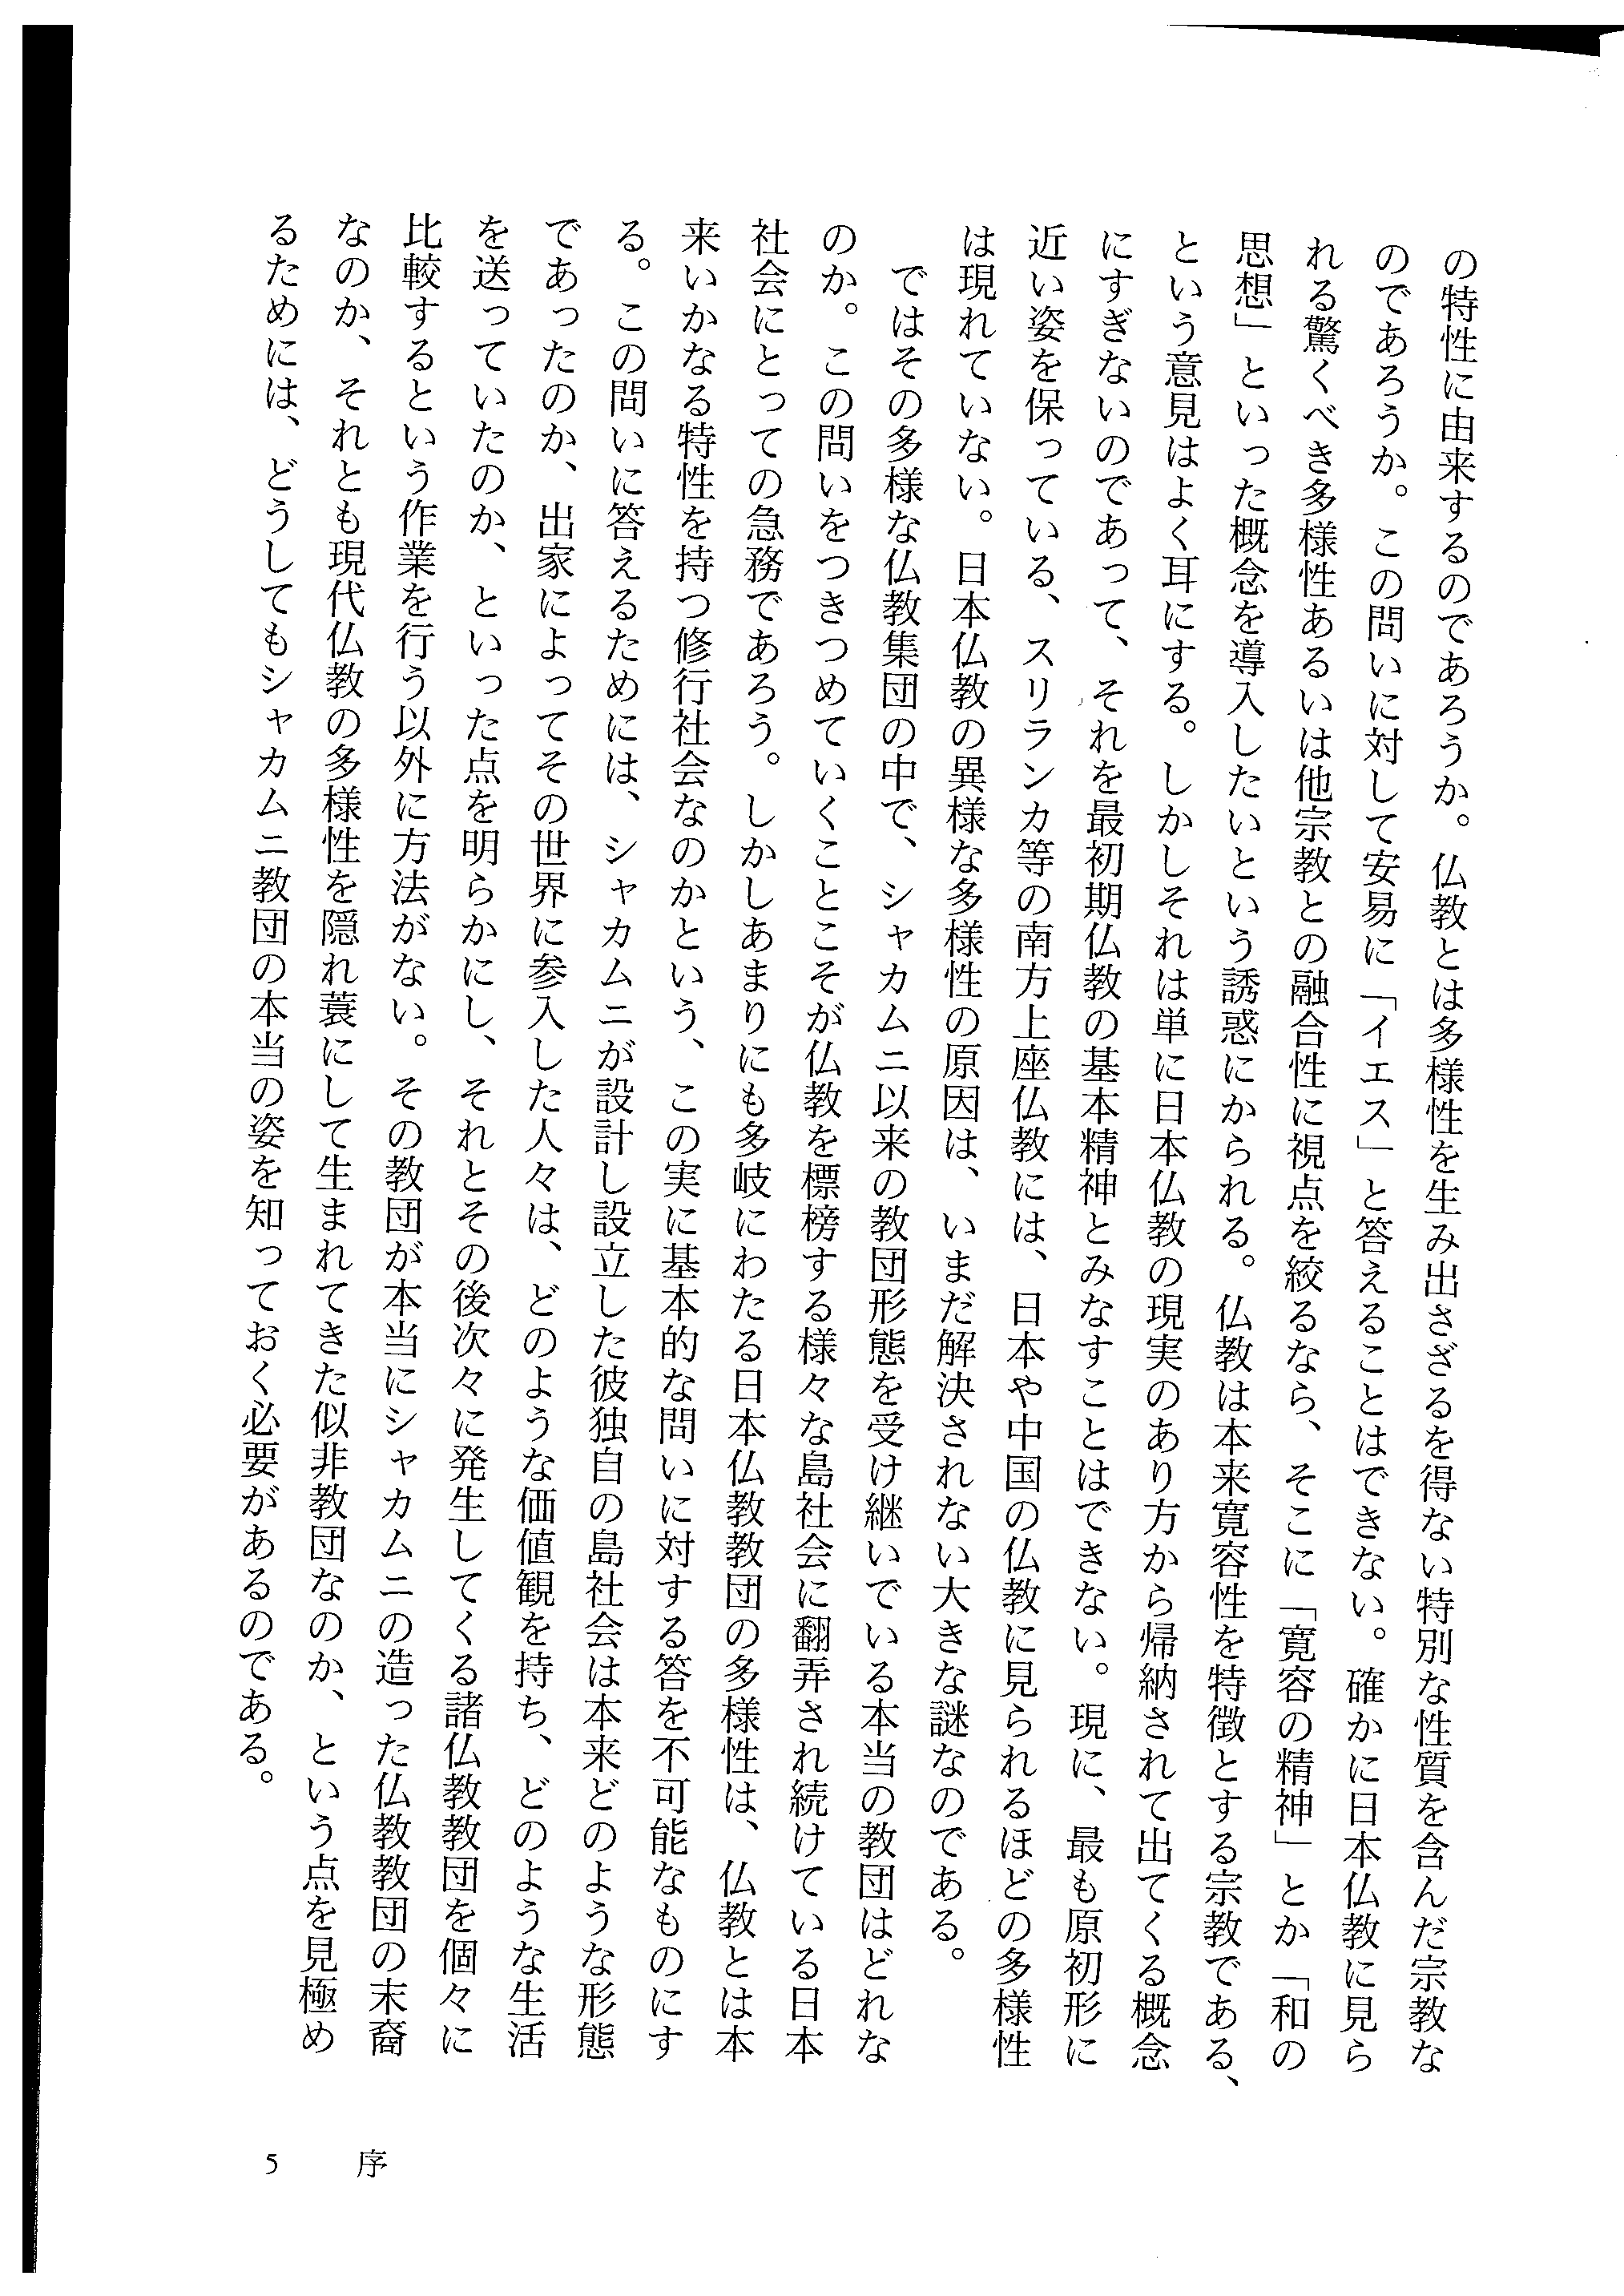 の特性に由来するのであろうか。仏教とは多様性を生み出さざるを得ない特別な性質を含んだ宗教な
のであろうか。この問いに対して安易に「イエス」と答えることはできない。確かに日本仏教に見ら
れる驚くべき多様性あるいは他宗教との融合性に視点を絞るなら、そこに「寛容の精神」とか「和の
思想」といった概念を導入したいという誘惑にかられる。仏教は本来寛容性を特徴とする宗教である、
という意見はよく耳にする。しかしそれは単に日本仏教の現実のあり方から帰納されて出てくる概念
にすぎないのであって、それを最初期仏教の基本精神とみなすことはできない。現に、最も原初形に
近い姿を保っている、スリランカ等の南方上座仏教には、日本や中国の仏教に見られるほどの多様性
は現れていない。日本仏教の異様な多様性の原因は、いまだ解決されない大きな謎なのである。
　ではその多様な仏教集団の中で、シャカムニ以来の教団形態を受け継いでいる本当の教団はどれな
のか。この問いをつきつめていくことこそが仏教を標榜する様々な島社会に翻弄され続けている日本
社会にとっての急務であろう。しかしあまりにも多岐にわたる日本仏教教団の多様性は、仏教とは本
来いかなる特性を持つ修行社会なのかという、この実に基本的な問いに対する答を不可能なものにす
る。この問いに答えるためには、シャカムニが設計し設立した彼独自の島社会は本来どのような形態
であったのか、出家によってその世界に参入した人々は、どのような価値観を持ち、どのような生活
を送っていたのか、といった点を明らかにし、それとその後次々に発生してくる諸仏教教団を個々に
比較するという作業を行う以外に方法がない。その教団が本当にシャカムニの造った仏教教団の末裔
なのか、それとも現代仏教の多様性を隠れ蓑にして生まれてきた似非教団なのか、という点を見極め
るためには、どうしてもシャカムニ教団の本当の姿を知っておく必要があるのである。
序
5